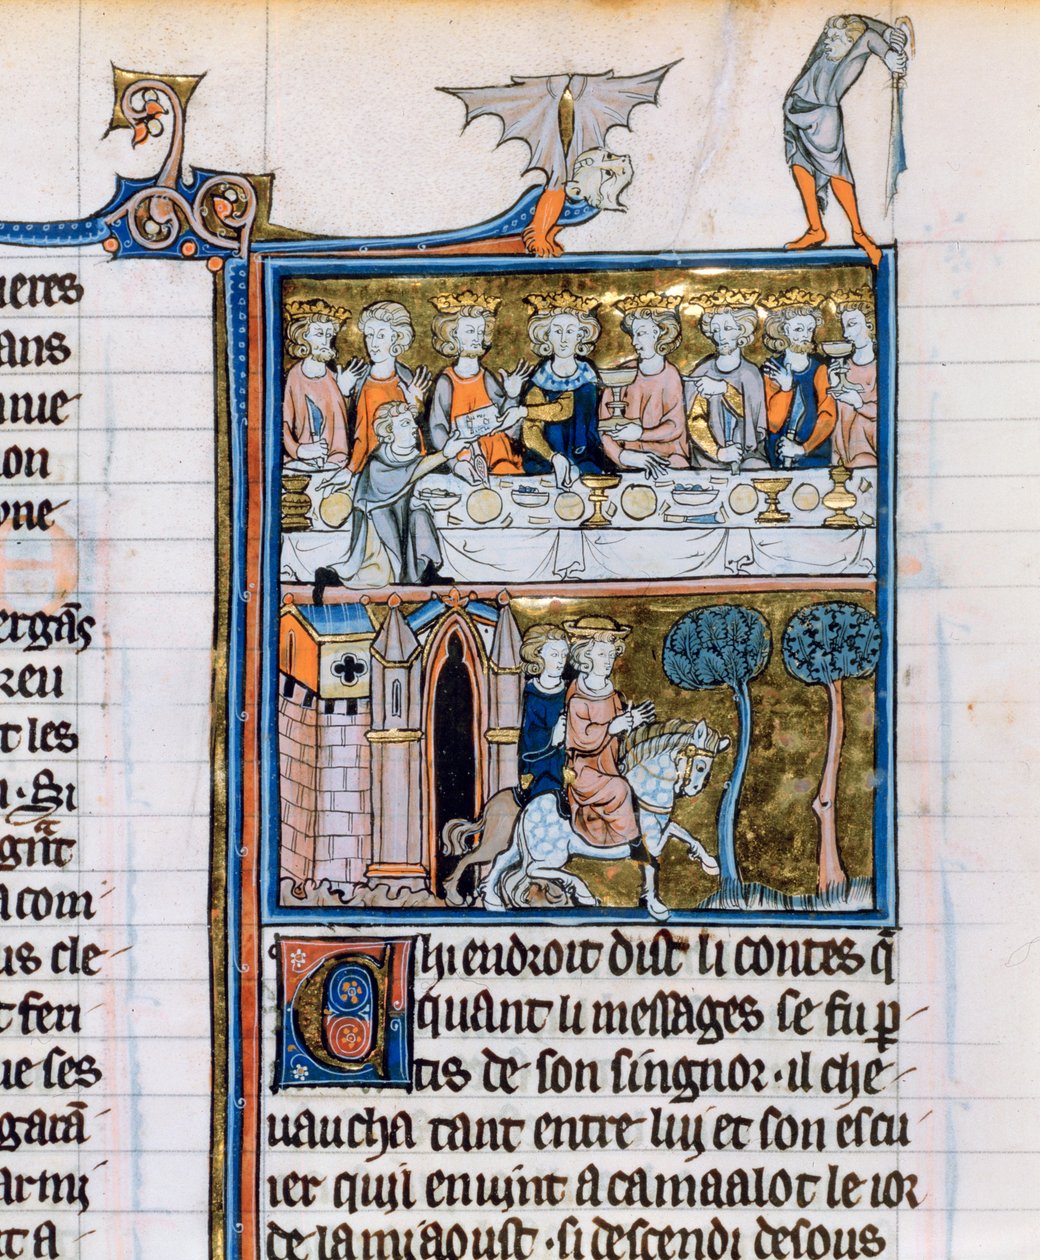 ueres
ans
nue
lon
yne
ergãs
reu
t les
Si
gãt
acom
us cle
t feri
ue ses
garã
armi
t a
Chi endroit dist li contes q̃
quant li messages se fu ꝑ
tis de son singnor · il che
uaucha tant entre luy et son escu
ier quil en uint a camaalot le ior
de la mi aoust · si descendi desous